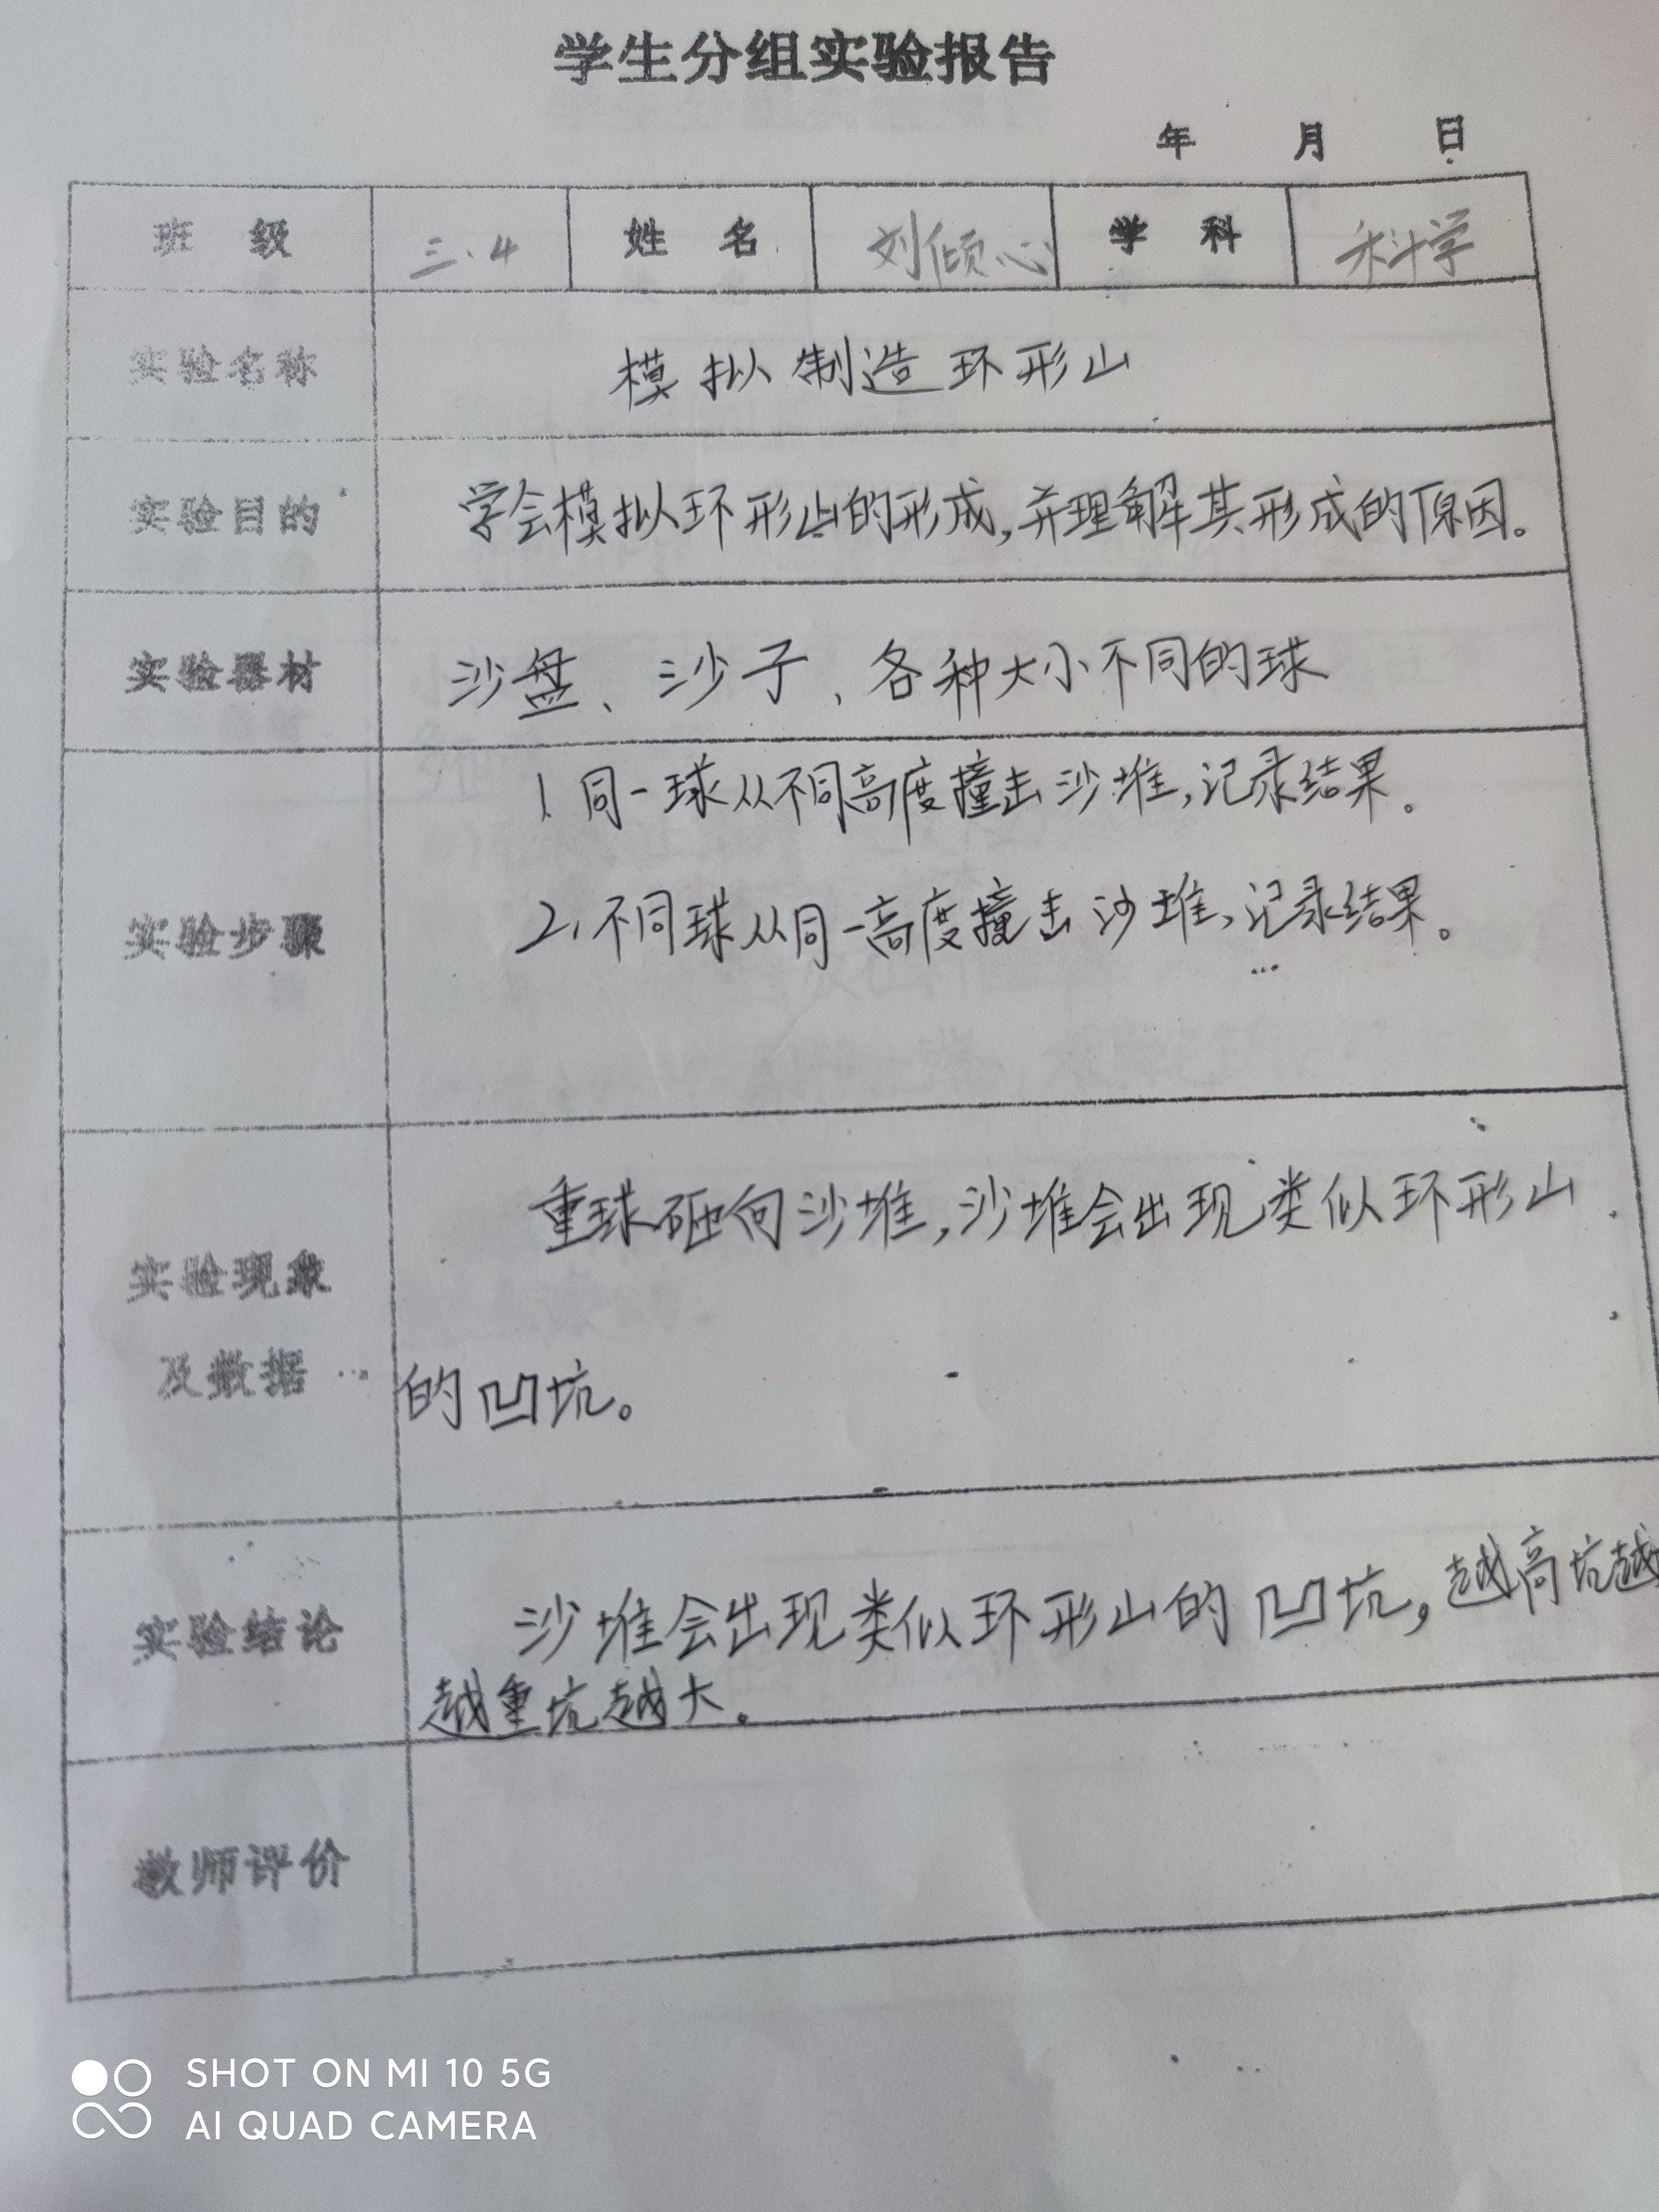 学生分组实验报告
年 月 日
班 级 三.4 姓 名 刘倾心 学 科 科学
实验名称 模拟制造环形山
实验目的 学会模拟环形山的形成,并理解其形成的原因。
实验器材 沙盘、沙子、各种大小不同的球
1.同一球从不同高度撞击沙堆,记录结果。
实验步骤
2.不同球从同一高度撞击沙堆,记录结果。
重球砸向沙堆,沙堆会出现类似环形山
实验现象
及数据
的凹坑。
实验结论 沙堆会出现类似环形山的凹坑,越高坑越
越重坑越大。
教师评价
SHOT ON MI 10 5G
AI QUAD CAMERA